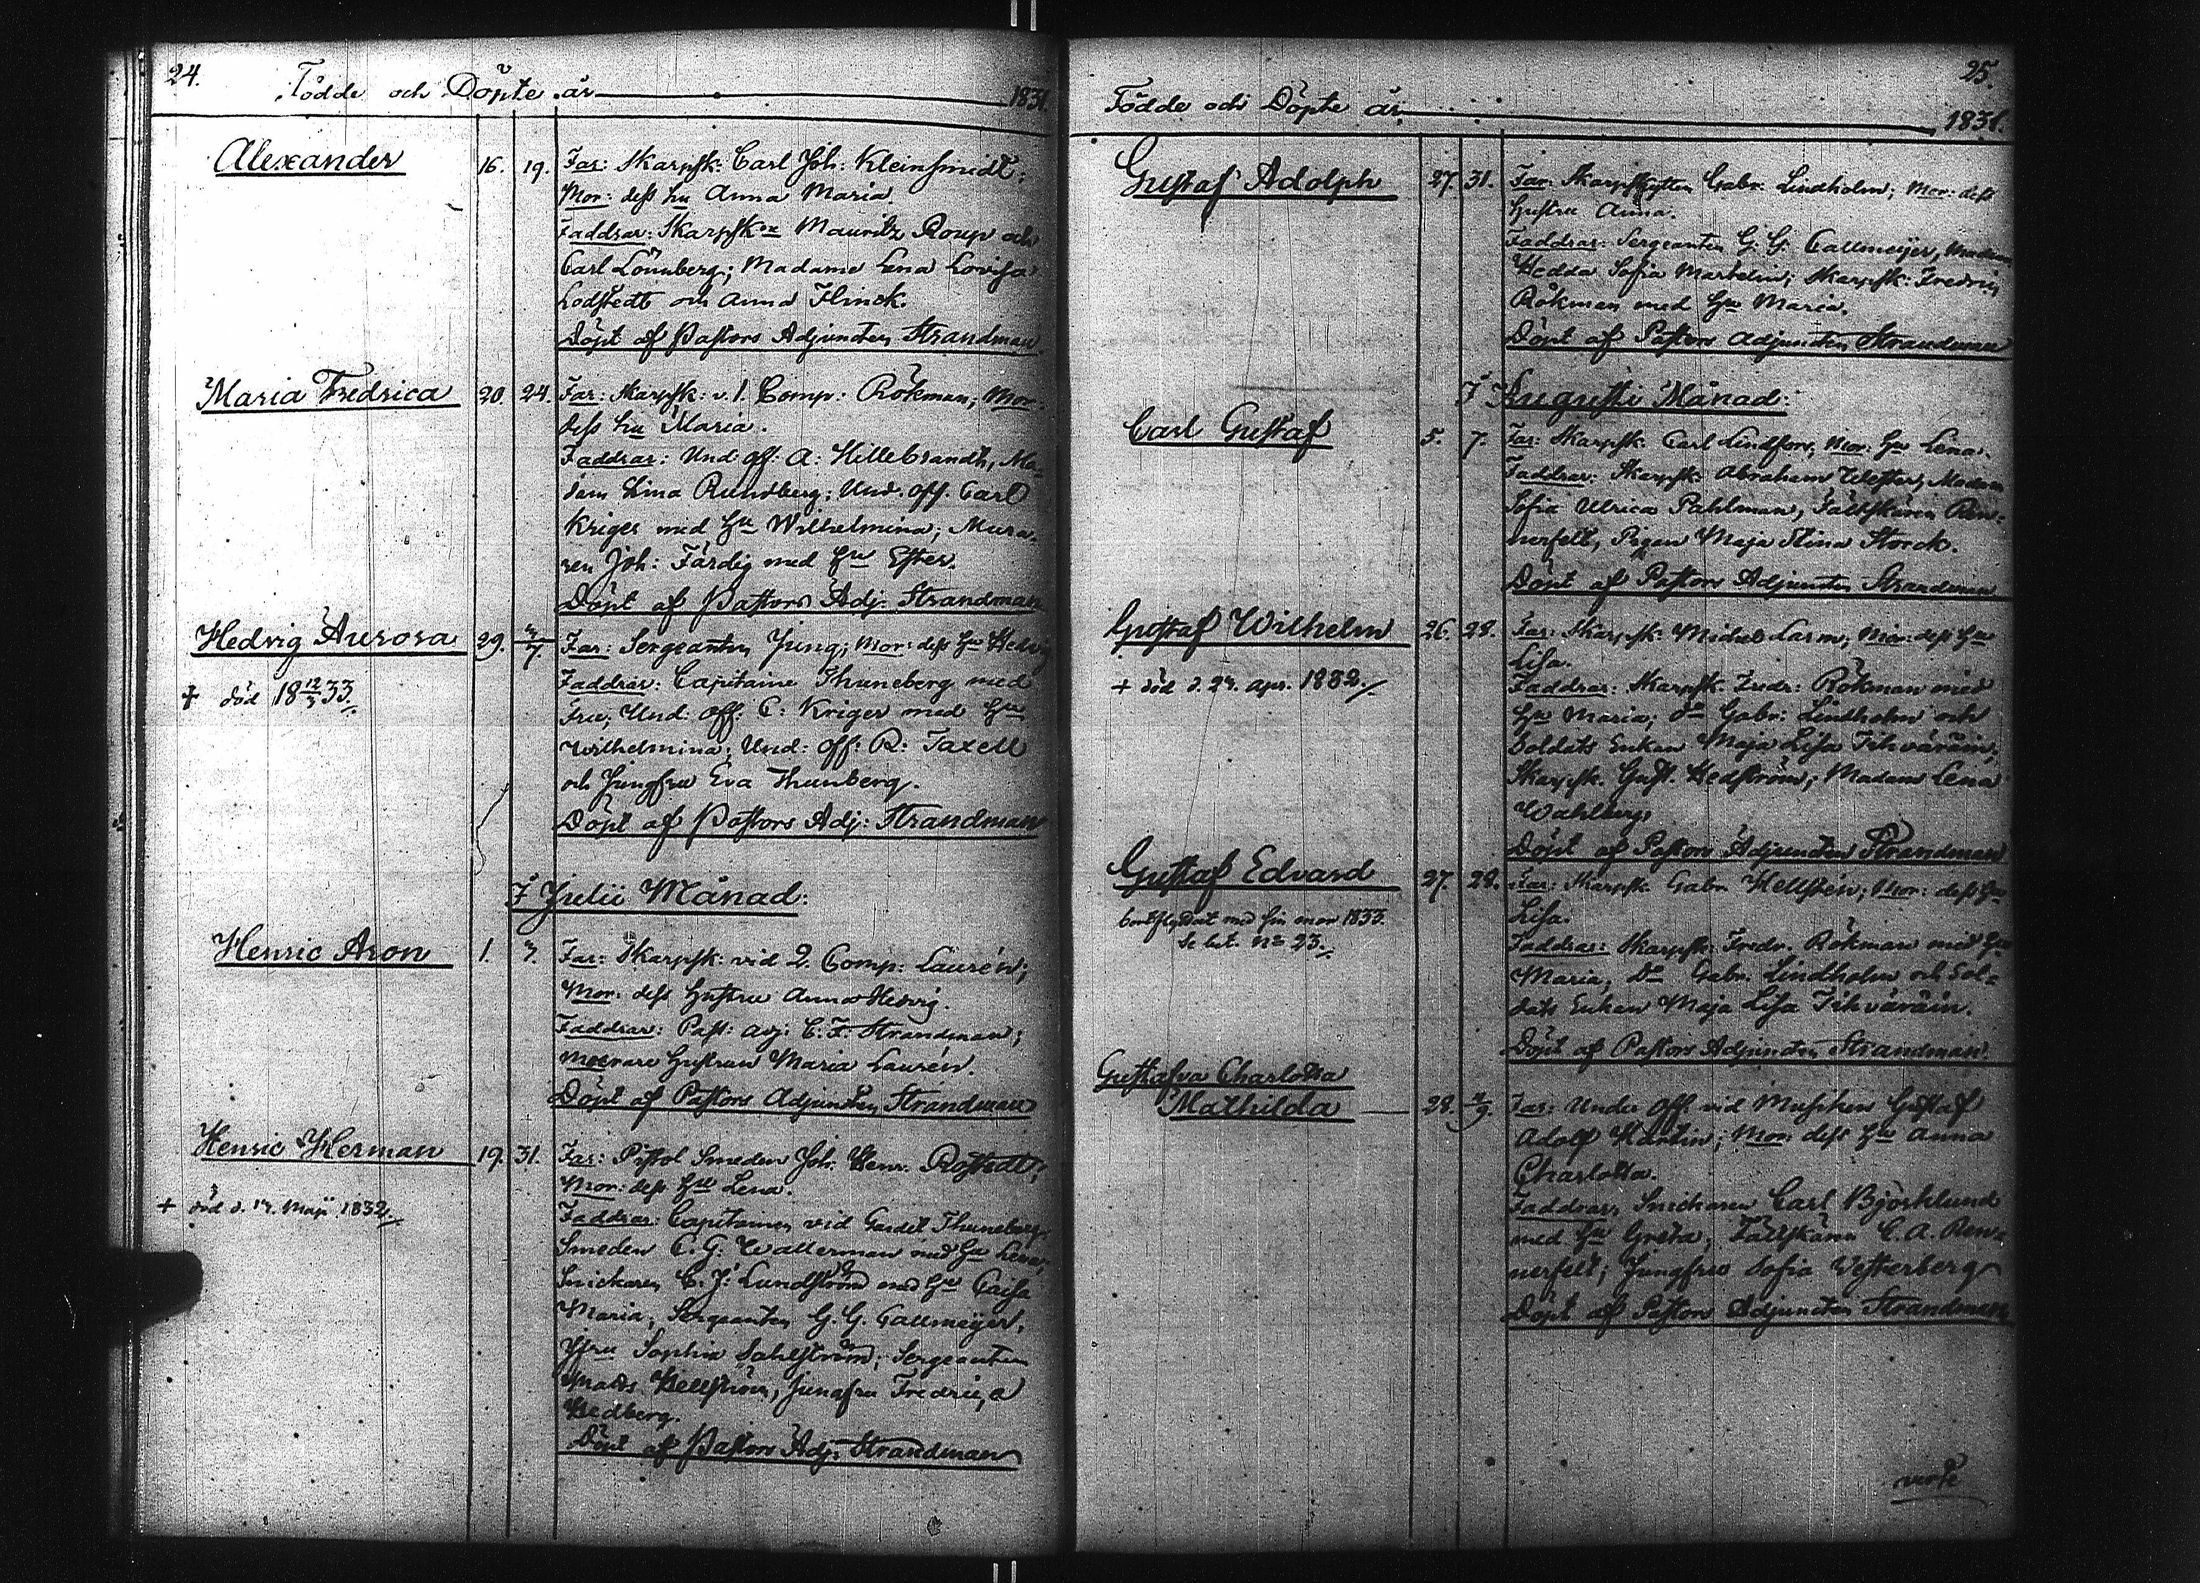 24.
Födde och Döpte år 1831.
Alexander 16. 19. Far: Skarpsk: Carl Joh: Kleinsmidt;
Mor: dess hu Anna Maria.
Faddrar: Skarpsk:ne Mauritz Roup och
Carl Lönnberg; Madame Lena Lovisa
Lodstedt och Anna Flinck.
Döpt af Pastors Adjuncten Strandman
Maria Fredrica 20. 24. Far: Skarpsk: v. 1. Comp: Rökman; Mor:
dess hu Maria.
Faddrar: Und: off: A: Hillebrandt, Ma-
dam Lina Rundberg; Und. off. Carl
Kriger med Hu Wilhelmina; Mura-
ren Joh: Färdig med Hu Ester.
Döpt af Pastors Adj: Strandman
Hedvig Aurora 29. 7. Far: Sergeanten Jung; Mor: dess Hu Hedvig
+ död 18 12/3 33.
Faddrar: Capitaine Thuneberg med
Fru; Und: off: C: Kriger med Hu
Wilhelmina; Und: off: R: Taxell
och Jungfru Eva Thunberg.
Döpt af Pastors Adj: Strandman
I Julii Månad:
Henric Aron 1. Far: Skarpsk: vid 2. Comp: Laurén;
Mor: dess Hustru Anna Hedvig.
Faddrar: Past: adj: C. F. Strandman;
Hustrun Maria Laurén.
Döpt af Pastors Adjuncten Strandman
Henric Herman 19. 31. Far: Pistol Smeden Joh. Henr. Rostedt;
Mor: dess Hu Lena.
+ död d. Maji 1832.
Faddrar: Capitainen vid Gardet Thuneberg,
Smeden C. G. Wallerman med Hu Lena,
Snickaren C. J. Lundström med Hu Caisa
Maria, Sergeanten G. G. Callmeijer,
Jfru Sophia Sahlström; Sergeanten
Mats Hellström, Jungfru Fredrica
Hedberg.
Döpt af Pastors Adj: Strandman
25.
Födde och Döpte år 1831.
Gustaf Adolph 27. 31. Far: Skarpskytten Gabr. Lindholm; Mor: dess
Hustru Anna.
Faddrar: Sergeanten G. G. Callmeijer, Madam
Hedda Sofia Markelin; Skarpsk: Fredric
Rökman med Hu Maria.
Döpt af Pastors Adjuncten Strandman
I Augusti Månad:
Carl Gustaf 5. 7. Far: Skarpsk: Carl Lindfors; Mor: Hu Lena.
Faddrar: Skarpsk: Abraham Wester, Madam
Sofia Ulrica Pahlman, Fältskären Ren-
nerfelt, Pigan Maja Stina Storck.
Döpt af Pastors Adjuncten Strandman
Gustaf Wilhelm 26. 28. Far: Skarpsk: Michel Larm; Mor: dess Hu
Lisa.
+ död d. apr. 1832.
Faddrar: Skarpsk: Fredr: Rökman med
Hu Maria; do Gabr: Lindholm och
Soldats Enkan Maja Lisa Tihväräin;
Skarpsk: Gust. Hedström; Madam Lena
Wahlberg.
Döpt af Pastors Adjuncten Strandman
Gustaf Edvard 27. 28. Far: Skarpsk: Gabr. Hellstén; Mor: dess Hu
Lisa.
bortflyttat med sin mor 1833.
Se bet. No 23.
Faddrar: Skarpsk: Fredr. Rökman med Hu
Maria; Do Gabr. Lindholm och Sol-
dats Enkan Maja Lisa Tihväräin.
Döpt af Pastors Adjuncten Strandman
Gustafva Charlotta
Mathilda 28. 9. Far: Under off. vid Musiken Gustaf
Adolf Martin; Mor: dess Hu Anna
Charlotta.
Faddrar, Snickaren Carl Björklund
med Hu Greta; Fältskären C. A. Ren-
nerfelt; Jungfru Sofia Vetterberg
Döpt af Pastors Adjuncten Strandman